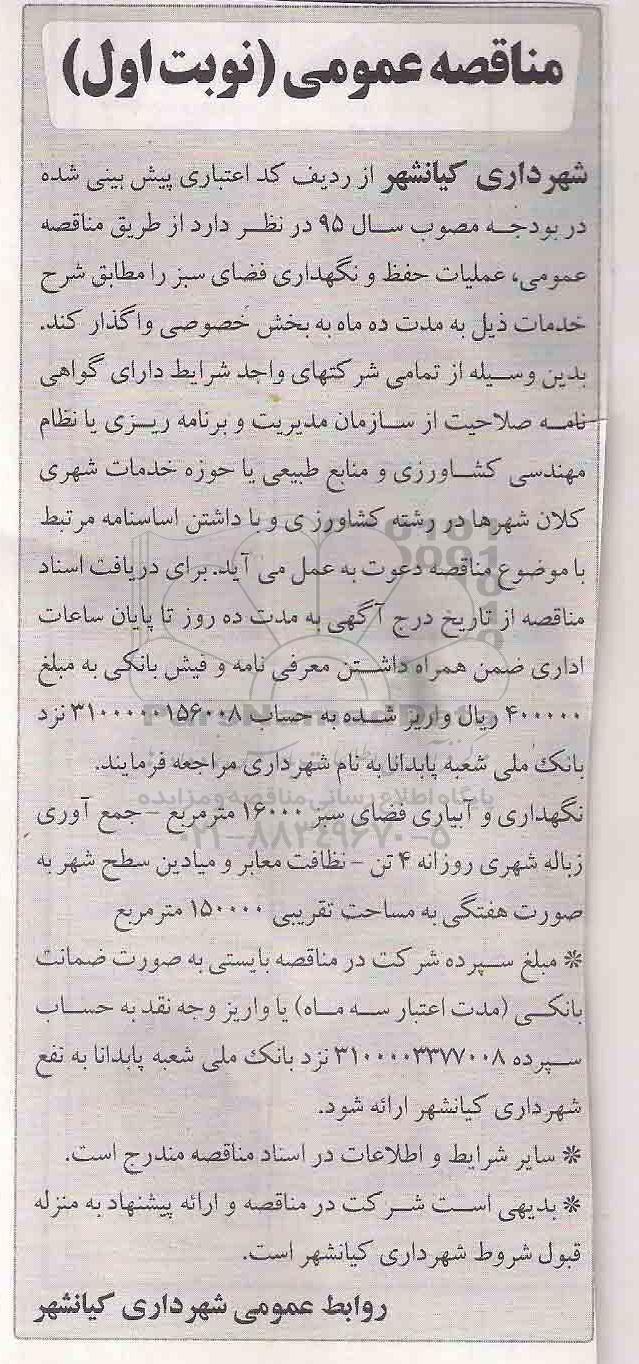 مناقصه عمومی (نوبت اول)
شهرداری کیانشهر از ردیف کد اعتباری پیش بینی شده
در بودجه مصوب سال ۹۵ در نظر دارد از طریق مناقصه
عمومی، عملیات حفظ و نگهداری فضای سبز را مطابق شرح
خدمات ذیل به مدت ده ماه به بخش خصوصی واگذار کند.
بدین وسیله از تمامی شرکتهای واجد شرایط دارای گواهی
نامه صلاحیت از سازمان مدیریت و برنامه ریزی یا نظام
مهندسی کشاورزی و منابع طبیعی یا حوزه خدمات شهری
کلان شهرها در رشته کشاورز ی و با داشتن اساسنامه مرتبط
با موضوع مناقصه دعوت به عمل می آید. برای دریافت اسناد
مناقصه از تاریخ درج آگهی به مدت ده روز تا پایان ساعات
اداری ضمن همراه داشتن معرفی نامه و فیش بانکی به مبلغ
۴۰۰۰۰۰ ریال واریز شده به حساب ۳۱۰۰۰۰۰۱۵۶۰۰۸ نزد
بانک ملی شعبه پابدانا به نام شهرداری مراجعه فرمایند.
پایگاه اطلاع رسانی مناقصه و مزایده
نگهداری و آبیاری فضای سبز ۱۶۰۰۰ مترمربع – جمع آوری
۰۲۱-۸۸۳۴۹۶۷۰-۵
زباله شهری روزانه ۴ تن – نظافت معابر و میادین سطح شهر به
صورت هفتگی به مساحت تقریبی ۱۵۰۰۰۰ مترمربع
* مبلغ سپرده شرکت در مناقصه بایستی به صورت ضمانت
بانکی (مدت اعتبار سه ماه) یا واریز وجه نقد به حساب
سپرده ۳۱۰۰۰۰۳۳۷۷۰۰۸ نزد بانک ملی شعبه پابدانا به نفع
شهرداری کیانشهر ارائه شود.
* سایر شرایط و اطلاعات در اسناد مناقصه مندرج است.
* بدیهی است شرکت در مناقصه و ارائه پیشنهاد به منزله
قبول شروط شهرداری کیانشهر است.
روابط عمومی شهرداری کیانشهر